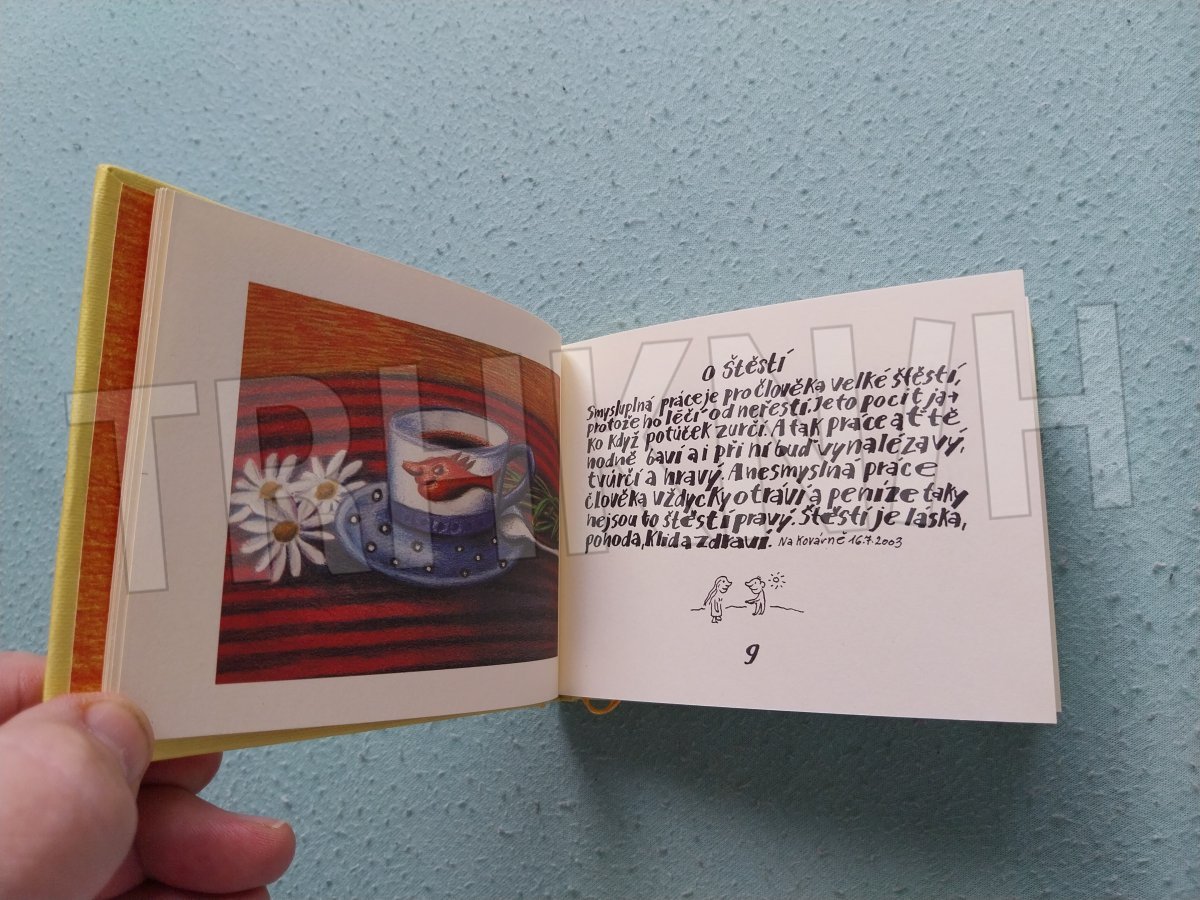 O ŠTĚSTÍ
Smysluplná práce je pro člověka velké štěstí,
protože ho léčí od neřesti. Je to pocit ja-
ko když potůček zurčí. A tak práce ať tě
hodně baví a i při ní buď vynalézavý,
tvůrčí a hravý. A nesmyslná práce
člověka vždycky otráví a peníze taky
nejsou to štěstí pravý. Štěstí je láska,
pohoda, klid a zdraví. Na Kovárně 16.7.2003
9
TRHKNIH